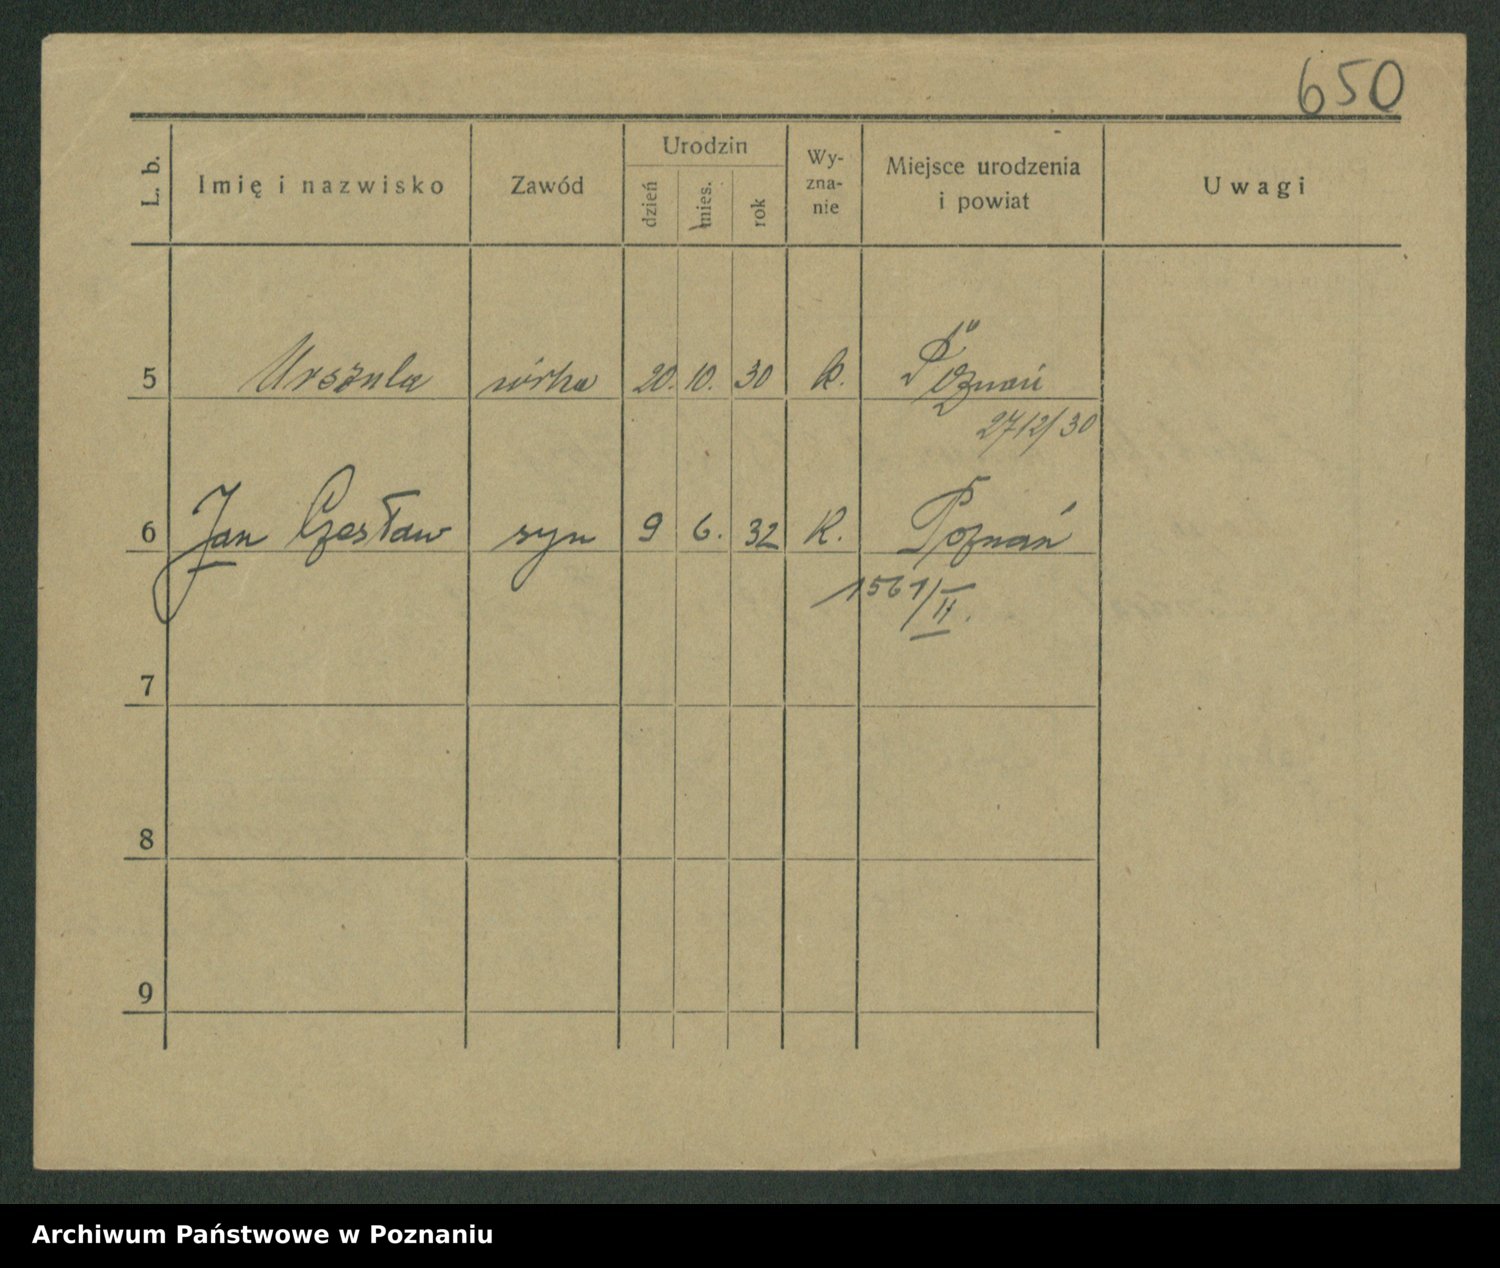 650
L. b. Imię i nazwisko Zawód Urodzin dzień mies. rok Wy-zna-nie Miejsce urodzenia i powiat Uwagi
5 Urszula córka 20. 10. 30 k. Poznań
2712/30
6 Jan Czesław syn 9 6. 32 k. Poznań
1561/II.
7
8
9
Archiwum Państwowe w Poznaniu